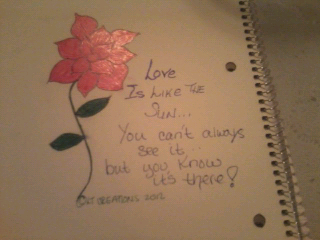 Love
Is Like The
Sun...
You can't always
see it...
but you know
it's there!
CREATIONS 2012